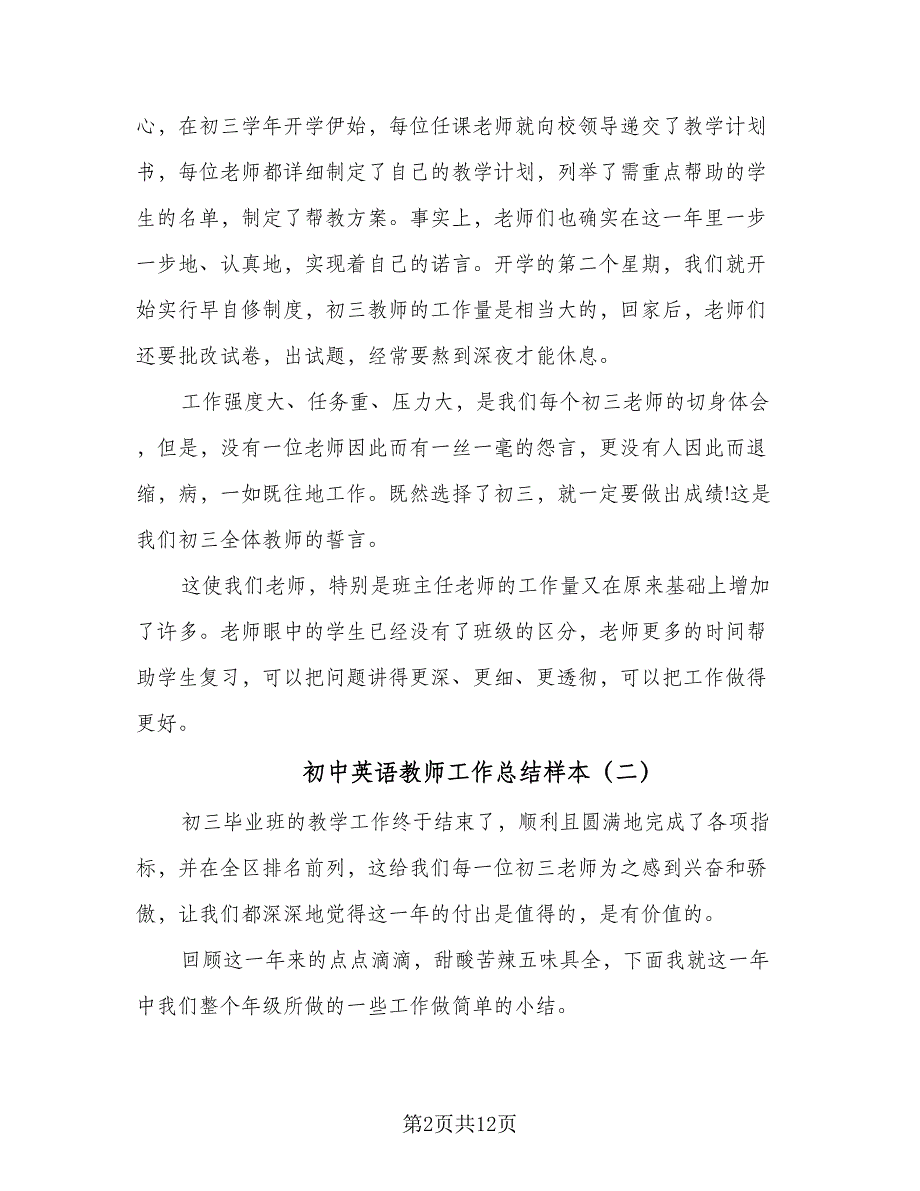 心，在初三学年开学伊始，每位任课老师就向校领导递交了教学计划
书，每位老师都详细制定了自己的教学计划，列举了需重点帮助的学
生的名单，制定了帮教方案。事实上，老师们也确实在这一年里一步
一步地、认真地，实现着自己的诺言。开学的第二个星期，我们就开
始实行早自修制度，初三教师的工作量是相当大的，回家后，老师们
还要批改试卷，出试题，经常要熬到深夜才能休息。
工作强度大、任务重、压力大，是我们每个初三老师的切身体会
，但是，没有一位老师因此而有一丝一毫的怨言，更没有人因此而退
缩，病，一如既往地工作。既然选择了初三，就一定要做出成绩!这是
我们初三全体教师的誓言。
这使我们老师，特别是班主任老师的工作量又在原来基础上增加
了许多。老师眼中的学生已经没有了班级的区分，老师更多的时间帮
助学生复习，可以把问题讲得更深、更细、更透彻，可以把工作做得
更好。
初中英语教师工作总结样本（二）
初三毕业班的教学工作终于结束了，顺利且圆满地完成了各项指
标，并在全区排名前列，这给我们每一位初三老师为之感到兴奋和骄
傲，让我们都深深地觉得这一年的付出是值得的，是有价值的。
回顾这一年来的点点滴滴，甜酸苦辣五味具全，下面我就这一年
中我们整个年级所做的一些工作做简单的小结。
第2页共12页